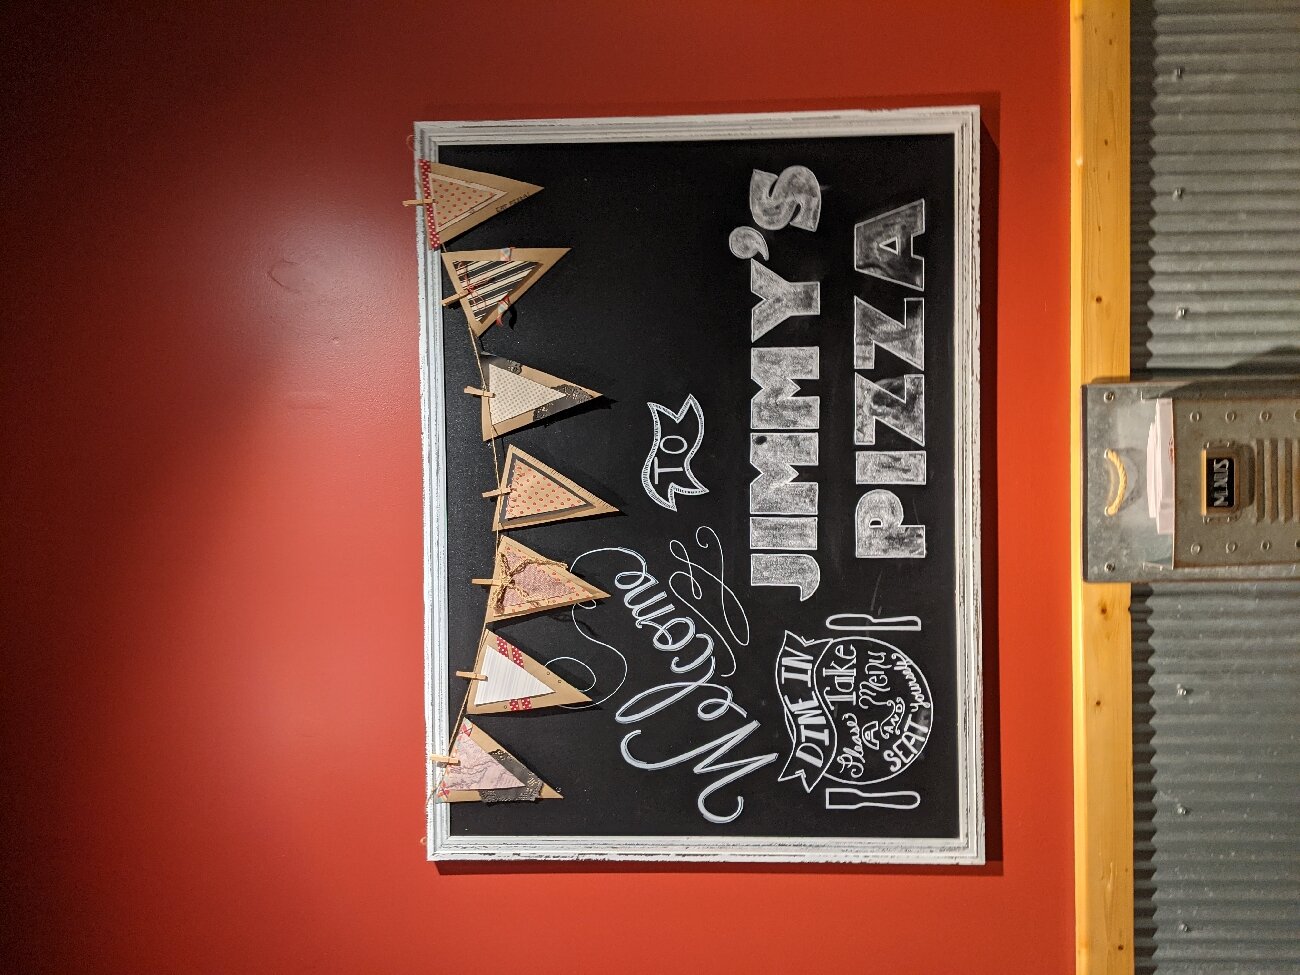 Welcome
TO
JIMMY'S
PIZZA
DINE IN
Please Take
A Menu
AND
SEAT yourself
MENUS